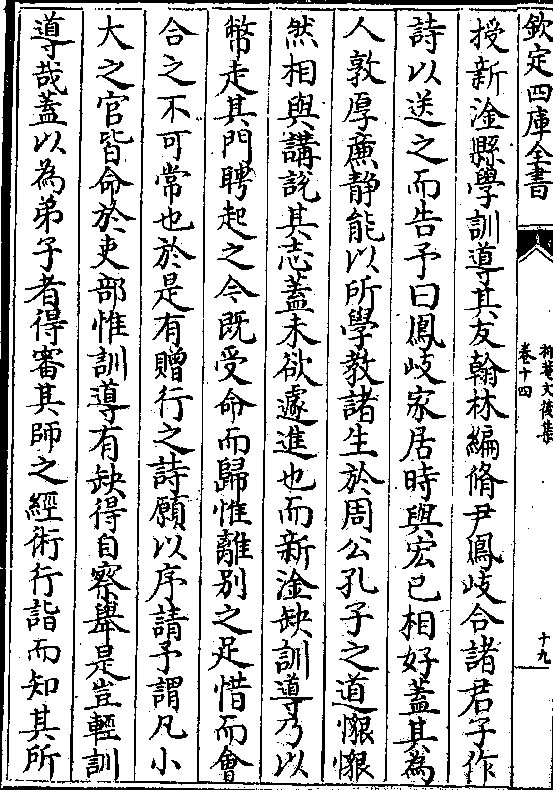 欽定四庫全書
抑菴文後集
卷十四
十九
授新淦縣學訓導其友翰林編脩尹鳳岐合諸君子作
詩以送之而告予曰鳳岐家居時與宏已相好蓋其為
人敦厚㢘静能以所學教諸生於周公孔子之道懇懇
然相與講說其志蓋未欲遽進也而新淦缺訓導乃以
幣走其門聘起之今既受命而歸惟離别之足惜而會
合之不可常也於是有贈行之詩願以序請予謂凡小
大之官皆命於吏部惟訓導有缺得自察舉是豈輕訓
導哉蓋以為弟子者得審其師之經術行誼而知其所